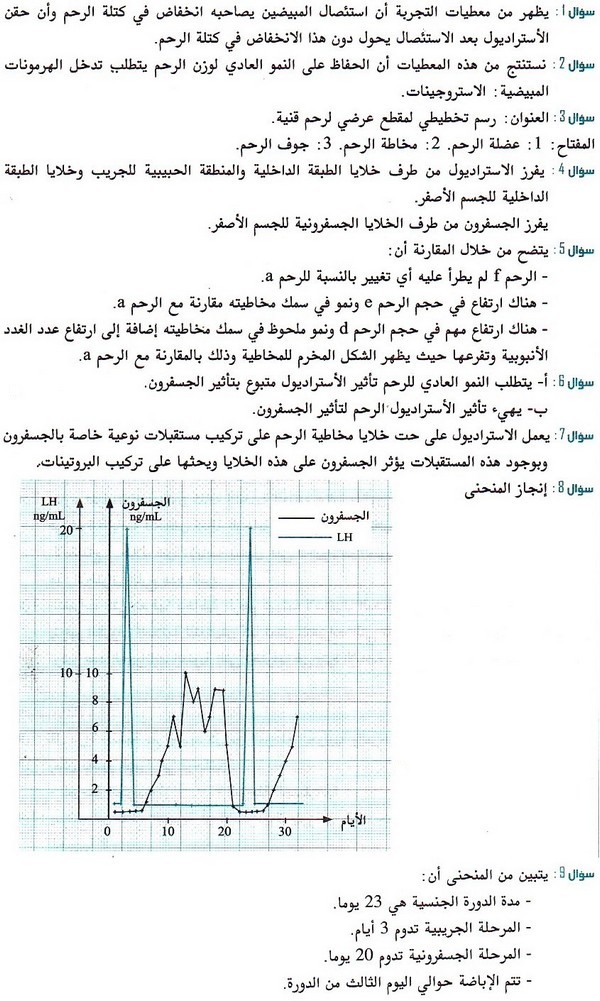 سؤال 1: يظهر من معطيات التجربة أن استئصال المبيضين يصاحبه انخفاض في كتلة الرحم وأن حقن
الأستراديول بعد الاستئصال يحول دون هذا الانخفاض في كتلة الرحم.
سؤال 2: نستنتج من هذه المعطيات أن الحفاظ على النمو العادي لوزن الرحم يتطلب تدخل الهرمونات
المبيضية: الاستروجينات.
سؤال 3: العنوان: رسم تخطيطي لمقطع عرضي لرحم قنية.
المفتاح: 1: عضلة الرحم. 2: مخاطة الرحم. 3: جوف الرحم.
سؤال 4: يفرز الاستراديول من طرف خلايا الطبقة الداخلية والمنطقة الحبيبية للجريب وخلايا الطبقة
الداخلية للجسم الأصفر.
يفرز الجسفرون من طرف الخلايا الجسفرونية للجسم الأصفر.
سؤال 5: يتضح من خلال المقارنة أن:
- الرحم f لم يطرأ عليه أي تغيير بالنسبة للرحم a.
- هناك ارتفاع في حجم الرحم e ونمو في سمك مخاطيته مقارنة مع الرحم a.
- هناك ارتفاع مهم في حجم الرحم d ونمو ملحوظ في سمك مخاطيته إضافة إلى ارتفاع عدد الغدد
الأنبوبية وتفرعها حيث يظهر الشكل المخرم للمخاطية وذلك بالمقارنة مع الرحم a.
سؤال 6: أ- يتطلب النمو العادي للرحم تأثير الأستراديول متبوع بتأثير الجسفرون.
ب- يهيء تأثير الأستراديول الرحم لتأثير الجسفرون.
سؤال 7: يعمل الاستراديول على حت خلايا مخاطية الرحم على تركيب مستقبلات نوعية خاصة بالجسفرون
وبوجود هذه المستقبلات يؤثر الجسفرون على هذه الخلايا ويحثها على تركيب البروتينات.
سؤال 8: إنجاز المنحنى
LH الجسفرون
ng/mL ng/mL
الجسفرون
LH
20
10 10
8
6
4
2
0 10 20 30 الأيام
سؤال 9: يتبين من المنحنى أن:
- مدة الدورة الجنسية هي 23 يوما.
- المرحلة الجريبية تدوم 3 أيام.
- المرحلة الجسفرونية تدوم 20 يوما.
- تتم الإباضة حوالي اليوم الثالث من الدورة.